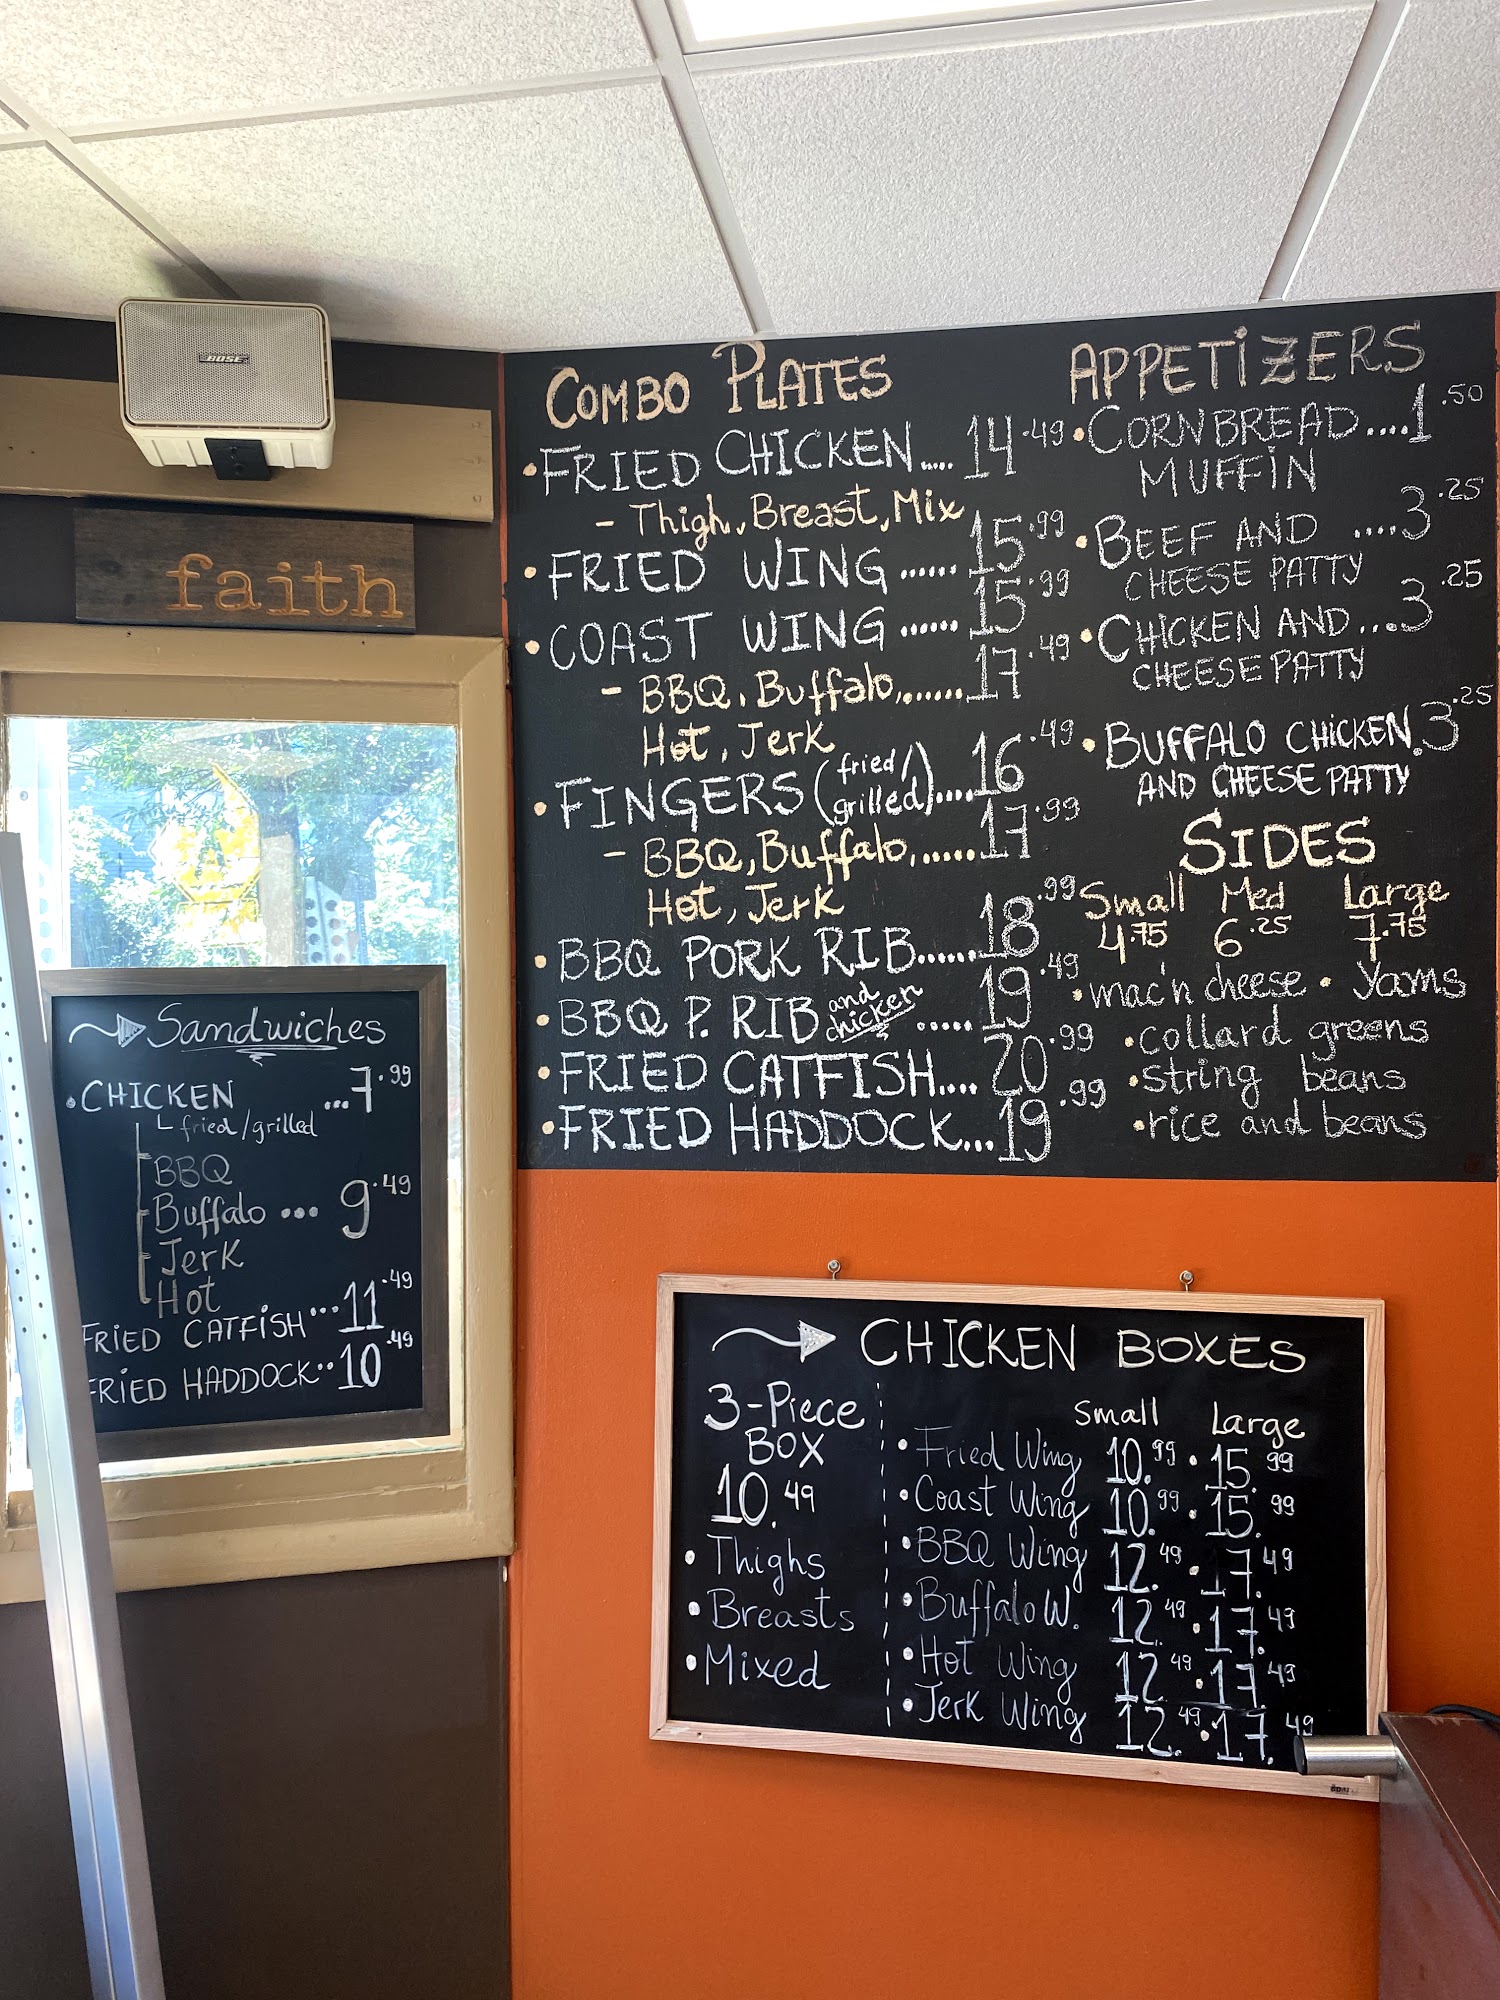 BOSE
faith
COMBO PLATES
• FRIED CHICKEN..... 14.49
- Thigh, Breast, Mix
• FRIED WING ...... 15.99
• COAST WING ...... 15.99
- BBQ, Buffalo, ...... 17.49
Hot, Jerk
• FINGERS (fried/grilled).... 16.49
- BBQ, Buffalo, ...... 17.99
Hot, Jerk
• BBQ PORK RIB...... 18.99
• BBQ P. RIB and chicken ..... 19.49
• FRIED CATFISH.... 20.99
• FRIED HADDOCK... 19.99
APPETIZERS
• CORNBREAD ....1.50
MUFFIN
• BEEF AND ....3.25
CHEESE PATTY
• CHICKEN AND ...3.25
CHEESE PATTY
• BUFFALO CHICKEN. 3.25
AND CHEESE PATTY
SIDES
Small Med Large
4.75 6.25 7.75
• mac'n cheese • yams
• collard greens
• string beans
• rice and beans
Sandwiches
• CHICKEN ...7.99
fried/grilled
BBQ
Buffalo ... 9.49
Jerk
Hot
FRIED CATFISH... 11.49
FRIED HADDOCK.. 10.49
CHICKEN BOXES
3-Piece
BOX
10.49
• Thighs
• Breasts
• Mixed
Small Large
• Fried Wing 10.99 • 15.99
• Coast Wing 10.99 • 15.99
• BBQ Wing 12.49 • 17.49
• Buffalo W. 12.49 • 17.49
• Hot Wing 12.49 • 17.49
• Jerk Wing 12.49 • 17.49